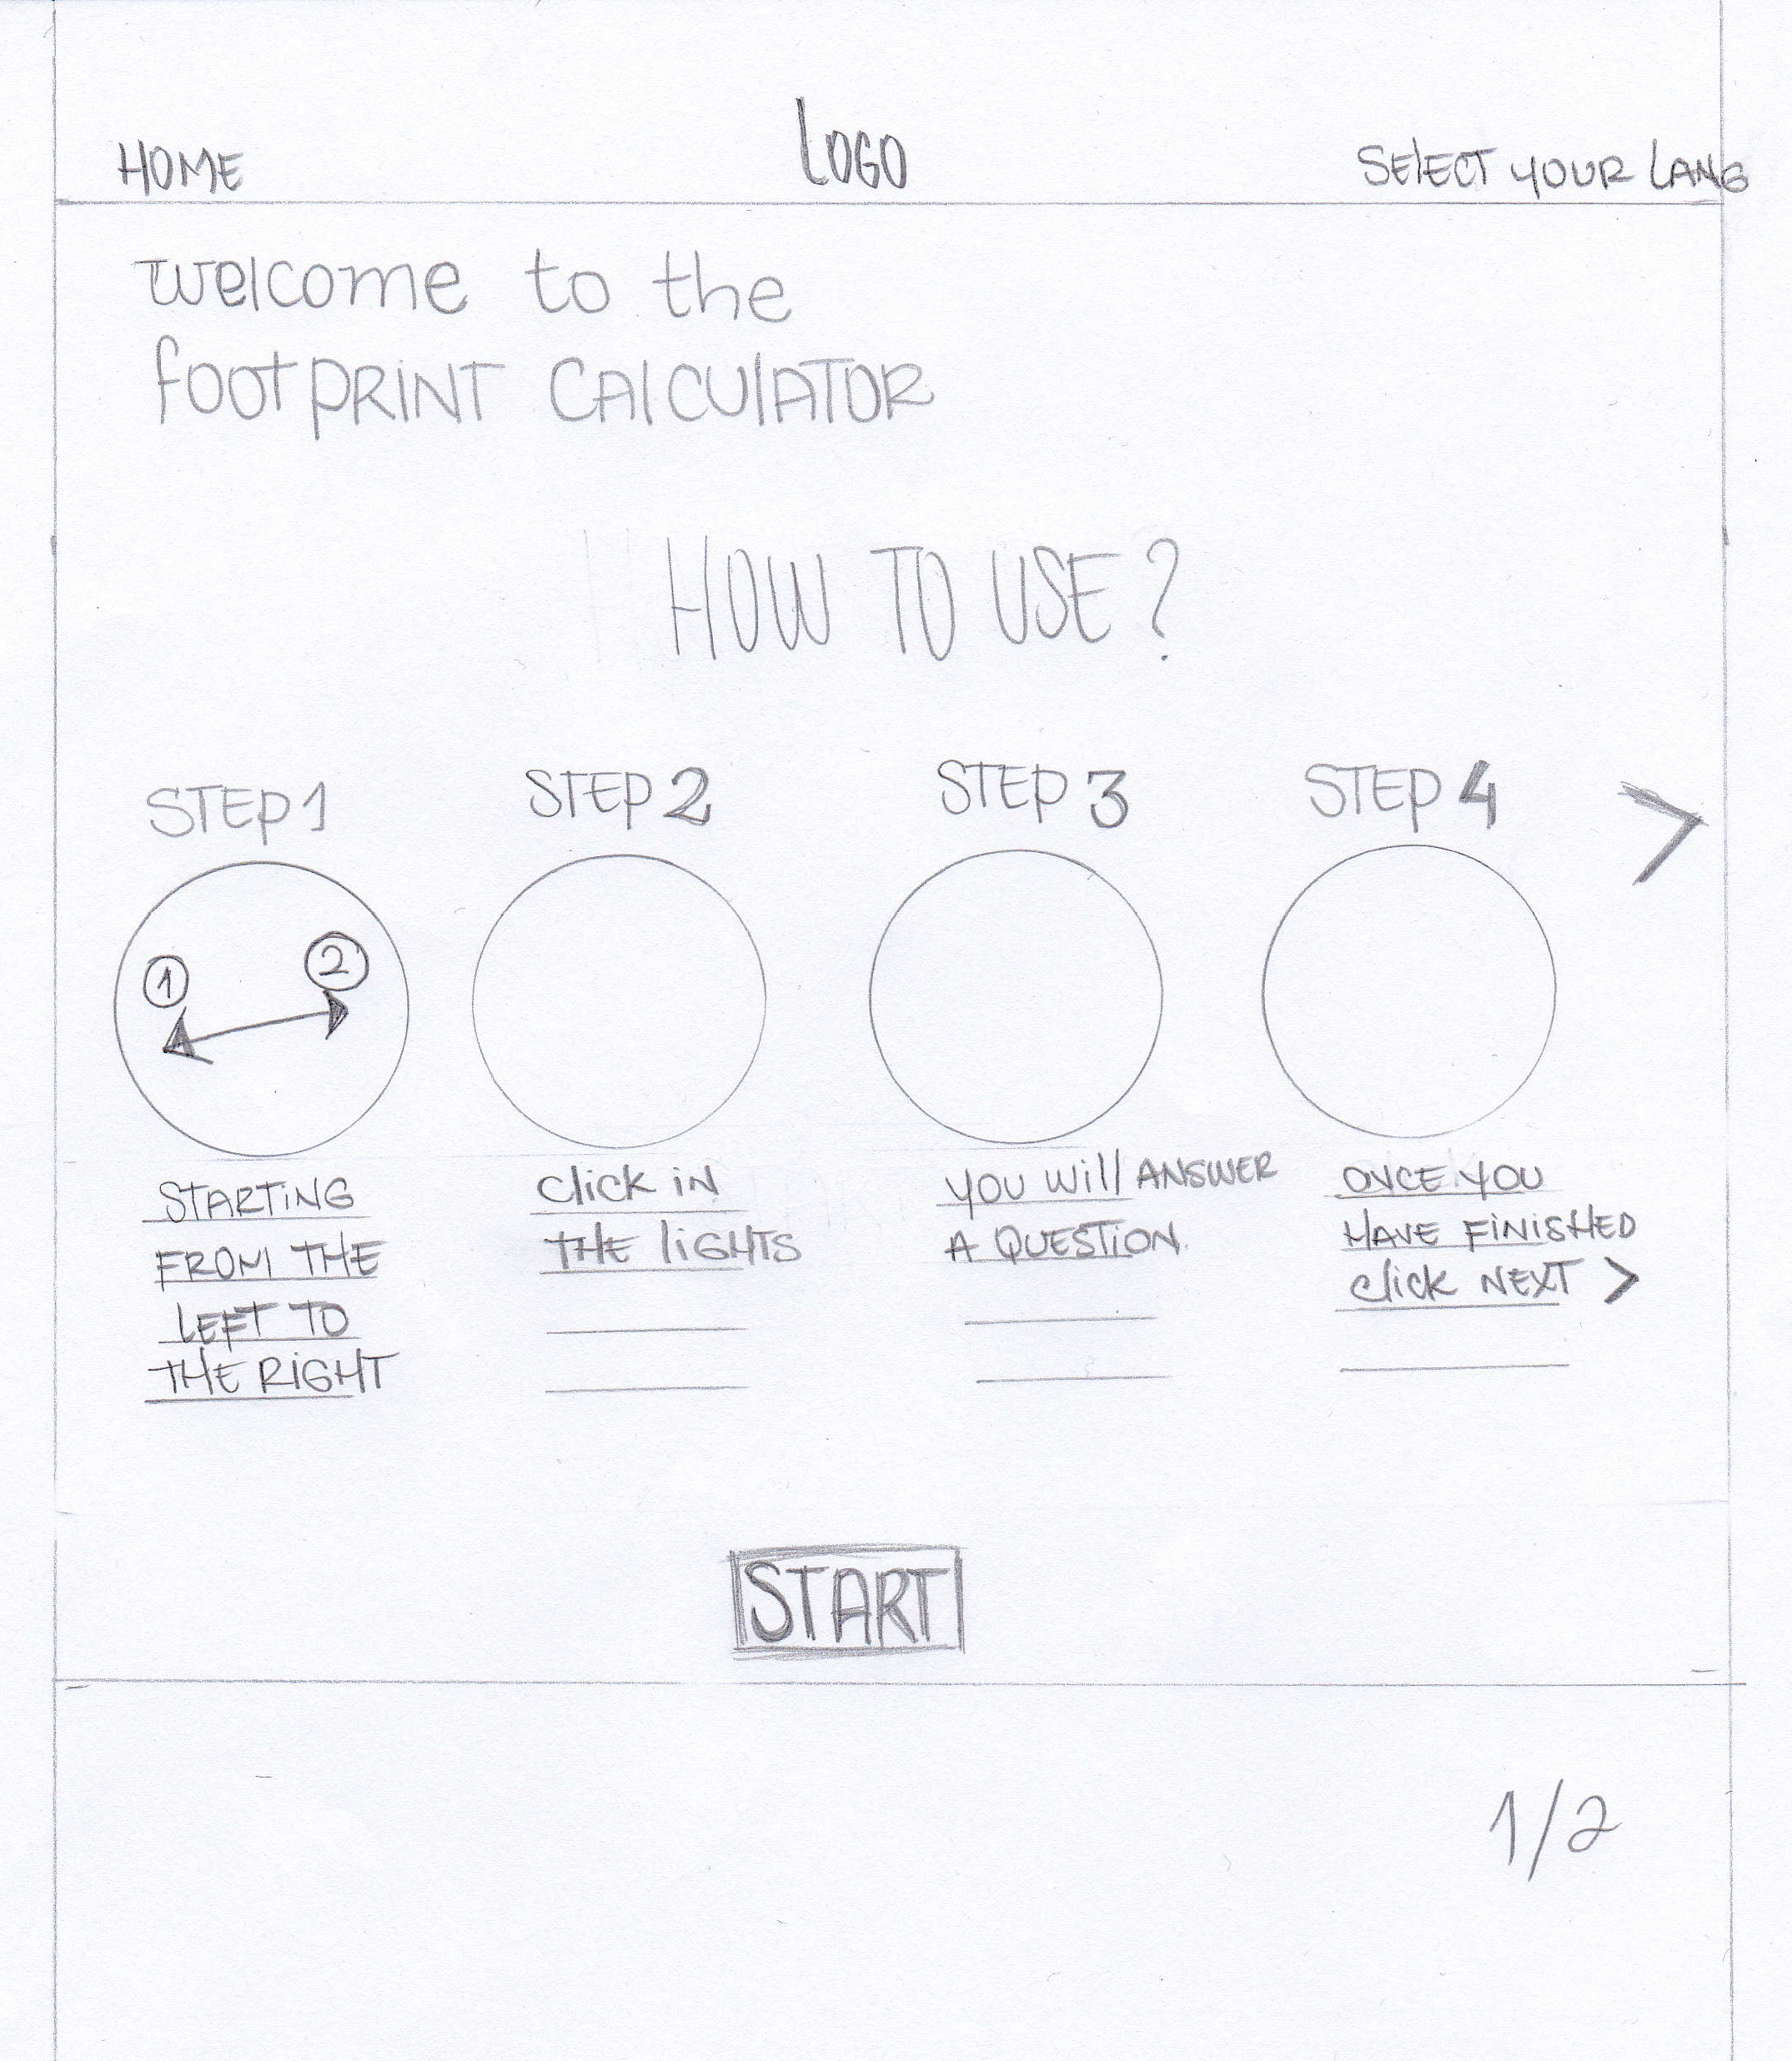 HOME
LOGO
SELECT YOUR LANG
welcome to the
footPRINT CALCULATOR
HOW TO USE?
STEP 1
STEP 2
STEP 3
STEP 4
>
1
2
STARTING
FROM THE
LEFT TO
THE RIGHT
Click iN
THE liGHTS
YOU Will ANSWER
A QUESTION.
ONCE YOU
HAVE FINISHED
Click NEXT >
START
1/2